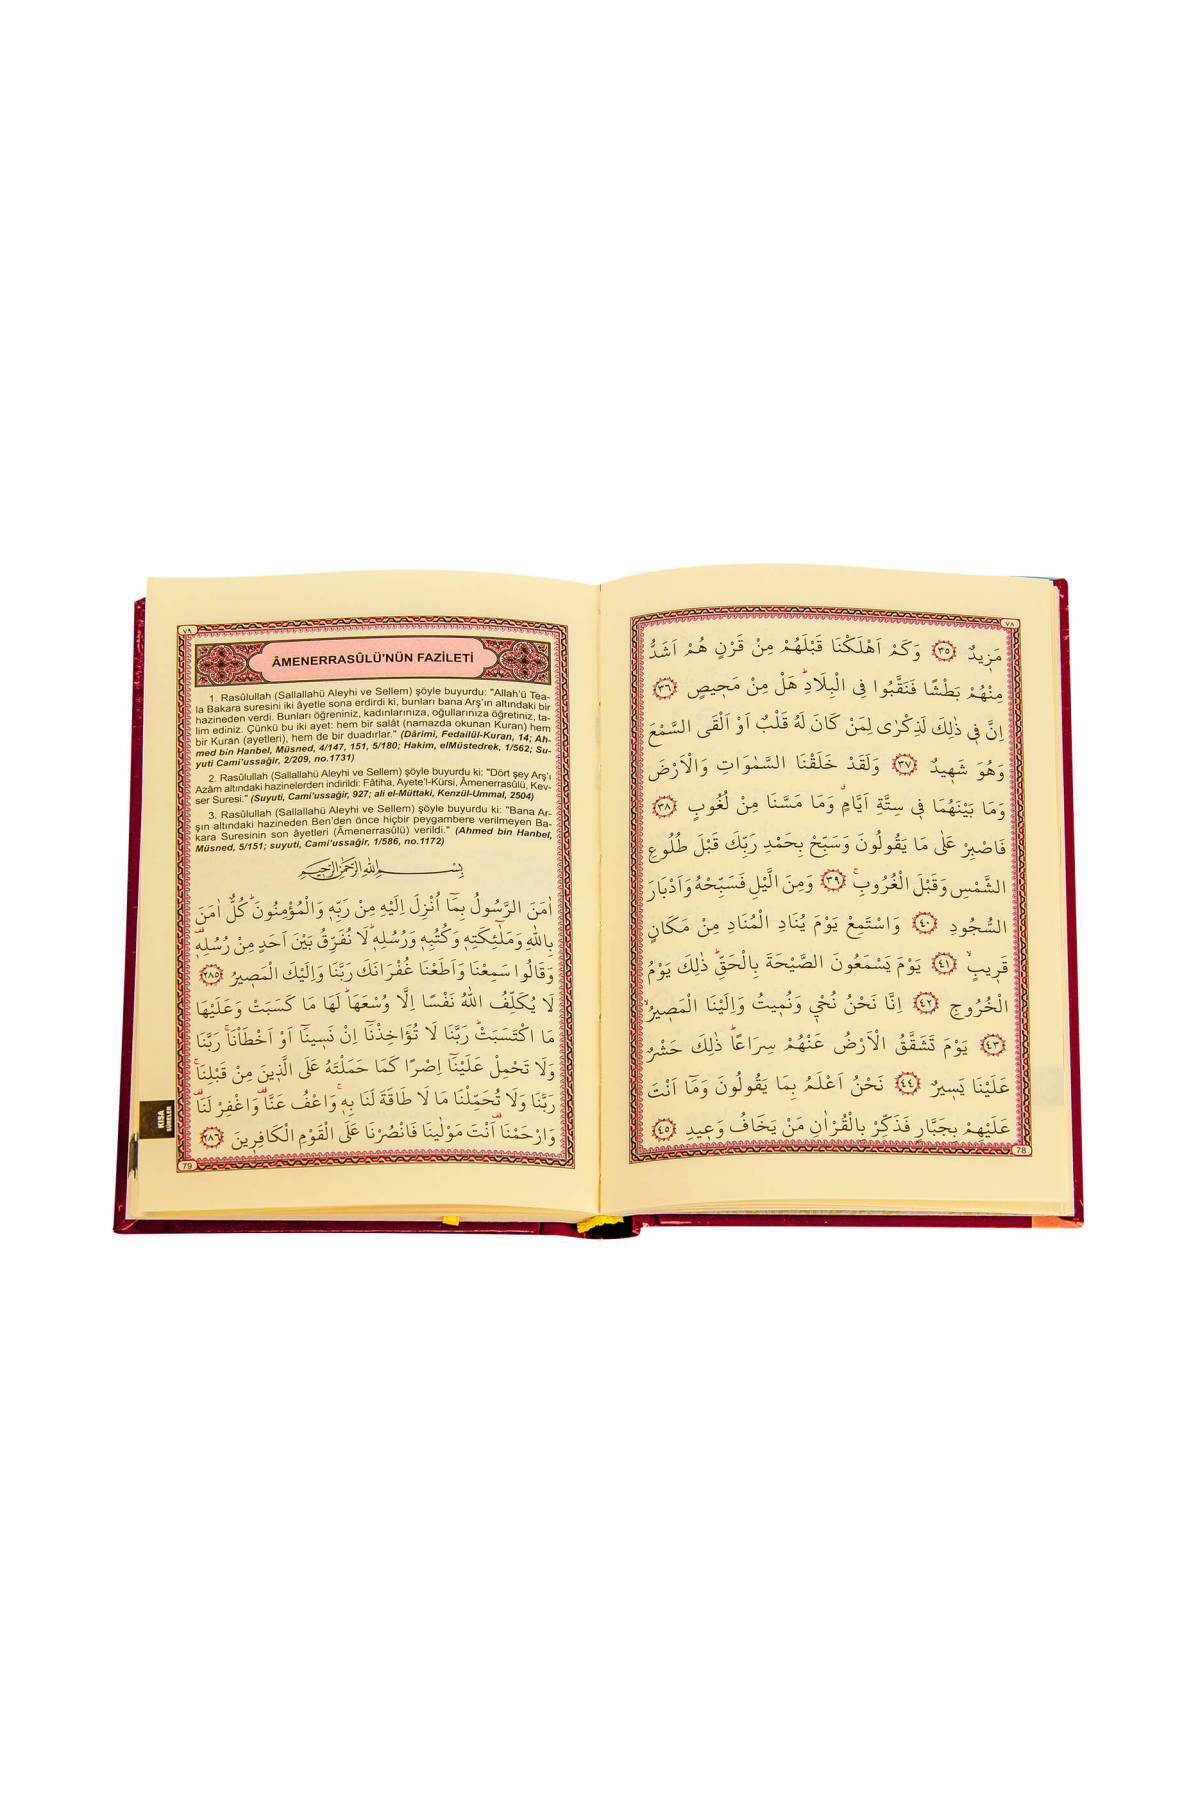 ٧٨
مَزٖيدٌ ﴿٣٥﴾ وَكَمْ اَهْلَكْنَا قَبْلَهُمْ مِنْ قَرْنٍ هُمْ اَشَدُّ
مِنْهُمْ بَطْشًا فَنَقَّبُوا فِي الْبِلَادِۜ هَلْ مِنْ مَحٖيصٍ ﴿٣٦﴾
اِنَّ فٖي ذٰلِكَ لَذِكْرٰى لِمَنْ كَانَ لَهُ قَلْبٌ اَوْ اَلْقَى السَّمْعَ
وَهُوَ شَهٖيدٌ ﴿٣٧﴾ وَلَقَدْ خَلَقْنَا السَّمٰوَاتِ وَالْاَرْضَ
وَمَا بَيْنَهُمَا فٖي سِتَّةِ اَيَّامٍۗ وَمَا مَسَّنَا مِنْ لُغُوبٍ ﴿٣٨﴾
فَاصْبِرْ عَلٰى مَا يَقُولُونَ وَسَبِّحْ بِحَمْدِ رَبِّكَ قَبْلَ طُلُوعِ
الشَّمْسِ وَقَبْلَ الْغُرُوبِۚ ﴿٣٩﴾ وَمِنَ الَّيْلِ فَسَبِّحْهُ وَاَدْبَارَ
السُّجُودِ ﴿٤٠﴾ وَاسْتَمِعْ يَوْمَ يُنَادِ الْمُنَادِ مِنْ مَكَانٍ
قَرٖيبٍۙ ﴿٤١﴾ يَوْمَ يَسْمَعُونَ الصَّيْحَةَ بِالْحَقِّۜ ذٰلِكَ يَوْمُ
الْخُرُوجِ ﴿٤٢﴾ اِنَّا نَحْنُ نُحْيٖ وَنُمٖيتُ وَاِلَيْنَا الْمَصٖيرُۙ
﴿٤٣﴾ يَوْمَ تَشَقَّقُ الْاَرْضُ عَنْهُمْ سِرَاعًاۜ ذٰلِكَ حَشْرٌ
عَلَيْنَا يَسٖيرٌ ﴿٤٤﴾ نَحْنُ اَعْلَمُ بِمَا يَقُولُونَ وَمَٓا اَنْتَ
عَلَيْهِمْ بِجَبَّارٍ فَذَكِّرْ بِالْقُرْاٰنِ مَنْ يَخَافُ وَعٖيدِ ﴿٤٥﴾
78
٧٩
ÂMENERRASÛLÜ'NÜN FAZİLETİ
1. Rasûlullah (Sallallahü Aleyhi ve Sellem) şöyle buyurdu: "Allah'ü Tea-
la Bakara suresini iki âyetle sona erdirdi ki, bunları bana Arş'ın altındaki bir
hazineden verdi. Bunları öğreniniz, kadınlarınıza, oğullarınıza öğretiniz, ta-
lim ediniz. Çünkü bu iki ayet: hem bir salât (namazda okunan Kuran) hem
bir Kuran (ayetleri), hem de bir duadırlar." (Dârimi, Fedailül-Kuran, 14; Ah-
med bin Hanbel, Müsned, 4/147, 151, 5/180; Hakim, elMüstedrek, 1/562; Su-
yuti Cami'ussağir, 2/209, no.1731)
2. Rasûlullah (Sallallahü Aleyhi ve Sellem) şöyle buyurdu ki: "Dört şey Arş'ı
Azâm altındaki hazinelerden indirildi: Fâtiha, Ayete'l-Kürsi, Âmenerrasûlü, Kev-
ser Suresi." (Suyuti, Cami'ussağir, 927; ali el-Müttaki, Kenzül-Ummal, 2504)
3. Rasûlullah (Sallallahü Aleyhi ve Sellem) şöyle buyurdu ki: "Bana Ar-
şın altındaki hazineden Ben'den önce hiçbir peygambere verilmeyen Ba-
kara Suresinin son âyetleri (Âmenerrasûlü) verildi." (Ahmed bin Hanbel,
Müsned, 5/151; suyuti, Cami'ussağir, 1/586, no.1172)
بِسْمِ اللّٰهِ الرَّحْمٰنِ الرَّحٖيمِ
اٰمَنَ الرَّسُولُ بِمَٓا اُنْزِلَ اِلَيْهِ مِنْ رَبِّهٖ وَالْمُؤْمِنُونَۜ كُلٌّ اٰمَنَ
بِاللّٰهِ وَمَلٰٓئِكَتِهٖ وَكُتُبِهٖ وَرُسُلِهٖۜ لَا نُفَرِّقُ بَيْنَ اَحَدٍ مِنْ رُسُلِهٖ۠
وَقَالُوا سَمِعْنَا وَاَطَعْنَا غُفْرَانَكَ رَبَّنَا وَاِلَيْكَ الْمَصٖيرُ ﴿٢٨٥﴾
لَا يُكَلِّفُ اللّٰهُ نَفْسًا اِلَّا وُسْعَهَاۜ لَهَا مَا كَسَبَتْ وَعَلَيْهَا
مَا اكْتَسَبَتْۜ رَبَّنَا لَا تُؤَاخِذْنَٓا اِنْ نَسٖينَٓا اَوْ اَخْطَأْنَاۚ رَبَّنَا
وَلَا تَحْمِلْ عَلَيْنَٓا اِصْرًا كَمَا حَمَلْتَهُ عَلَى الَّذٖينَ مِنْ قَبْلِنَاۚ
رَبَّنَا وَلَا تُحَمِّلْنَا مَا لَا طَاقَةَ لَنَا بِهٖۚ وَاعْفُ عَنَّا۠ وَاغْفِرْ لَنَا۠
وَارْحَمْنَا۠ اَنْتَ مَوْلٰينَا فَانْصُرْنَا عَلَى الْقَوْمِ الْكَافِرٖينَ ﴿٢٨٦﴾
79
KISA
SÛRELER